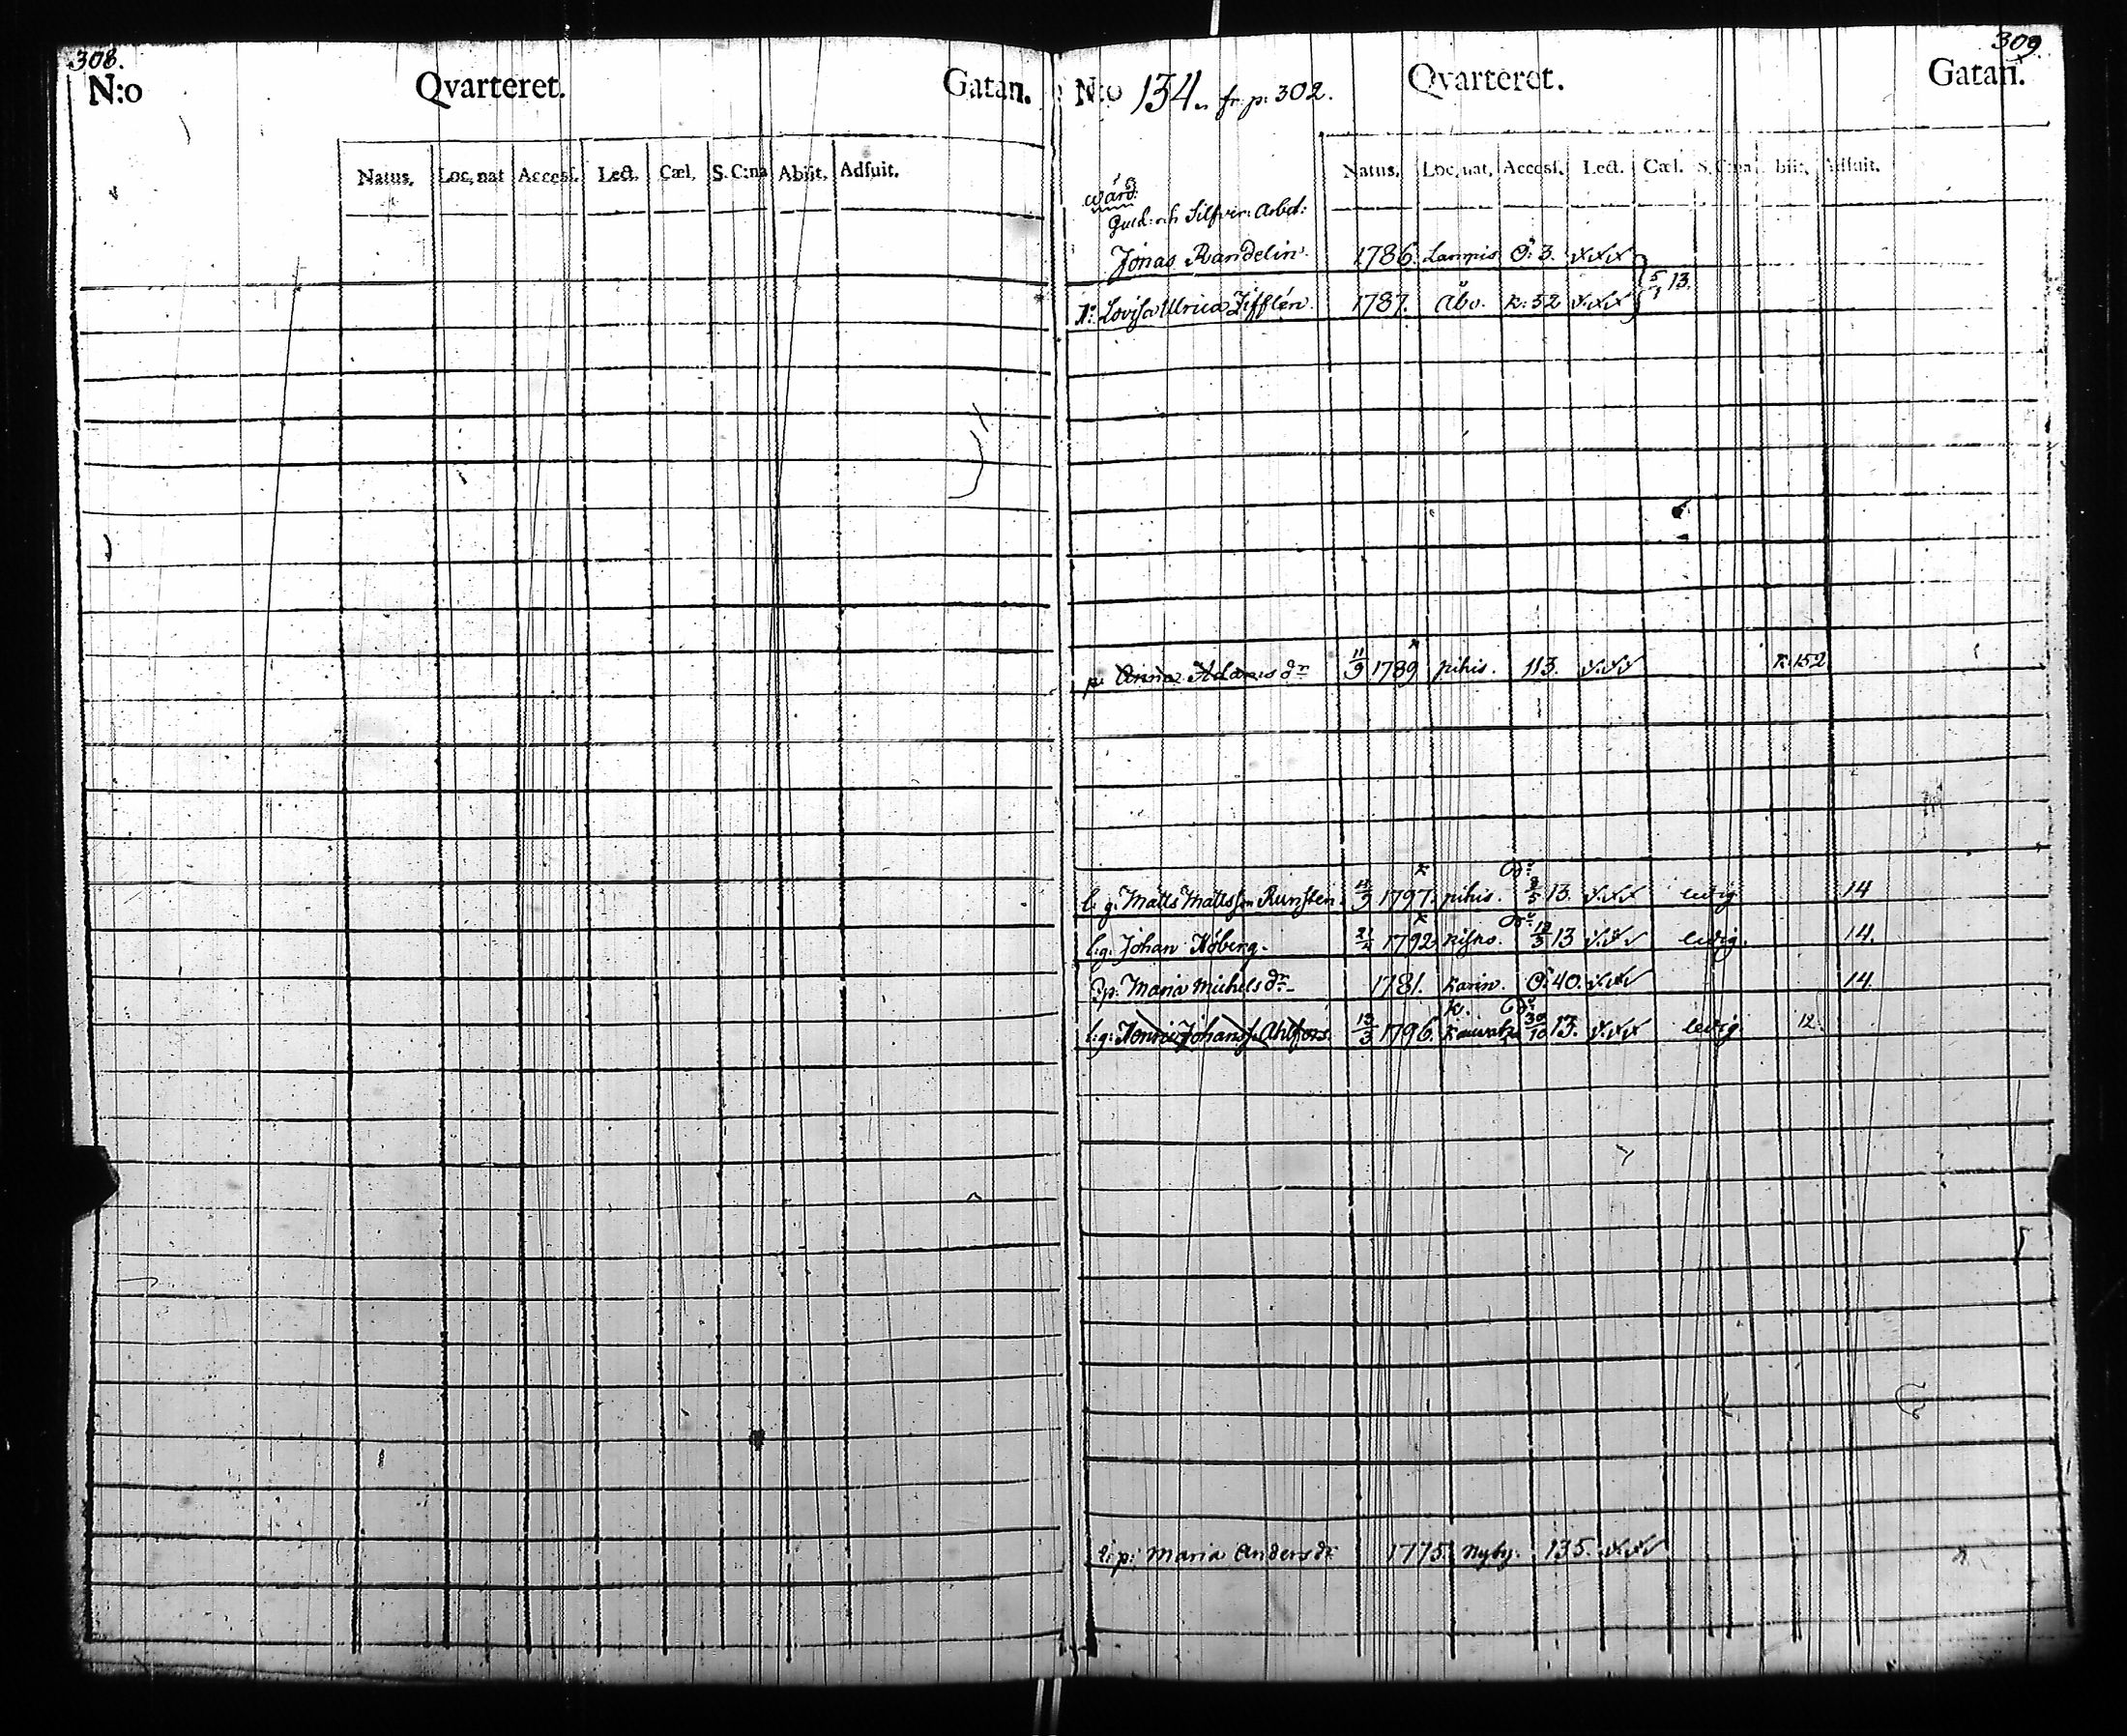 308.
N:o Qvarteret. Gatan.
Natus. Loc. nat Accesf. Lect. Cæl. S. C:na Abiit. Adfuit.
309
N:o 134. fr. p. 302. Qvarteret. Gatan.
Natus. Loc. nat. Accesf. Lect. Cæl. S. C:na biit. Adfuit.
Wärd.
Guld: och Silfver: Arbet:
Jonas Randelin. 1786. Lampis O: 3.
H: Lovisa Ulrica Zifflén. 1787. Åbo. K: 32 5/1 13.
p. Anna Adams dr 11/9 1789 pikis. 113. K. 152
l: g. Matts Mattsson Runsten. 1797. pikis. 13. ledig 14
l: g. Johan Höberg. 1792 13 ledig. 14.
p. Maria Michels dr 1781. Karin. O: 40. 14.
l: g: Henric Johans s. Ahlfors. 13/3 1796. 30/10 13. ledig 12.
p: Maria Anders dr 1775. Nyby. 135.